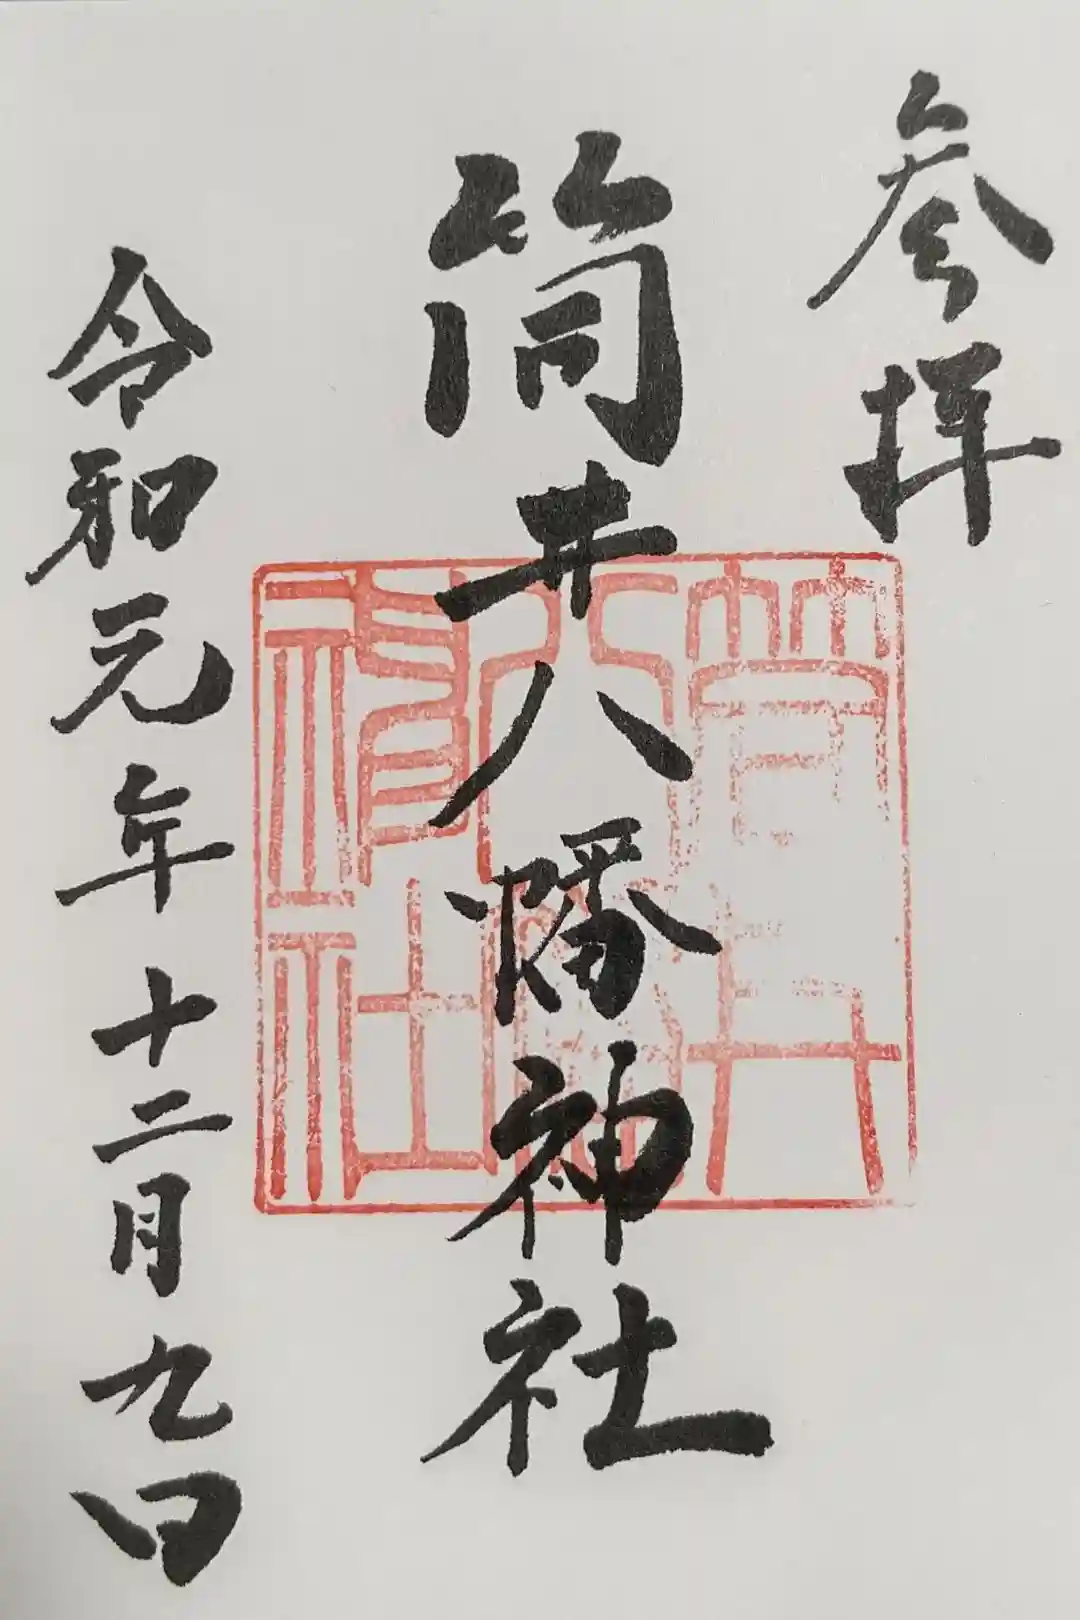 参拝
筒井八幡神社
令和元年十二月九日
筒井
八幡
神社